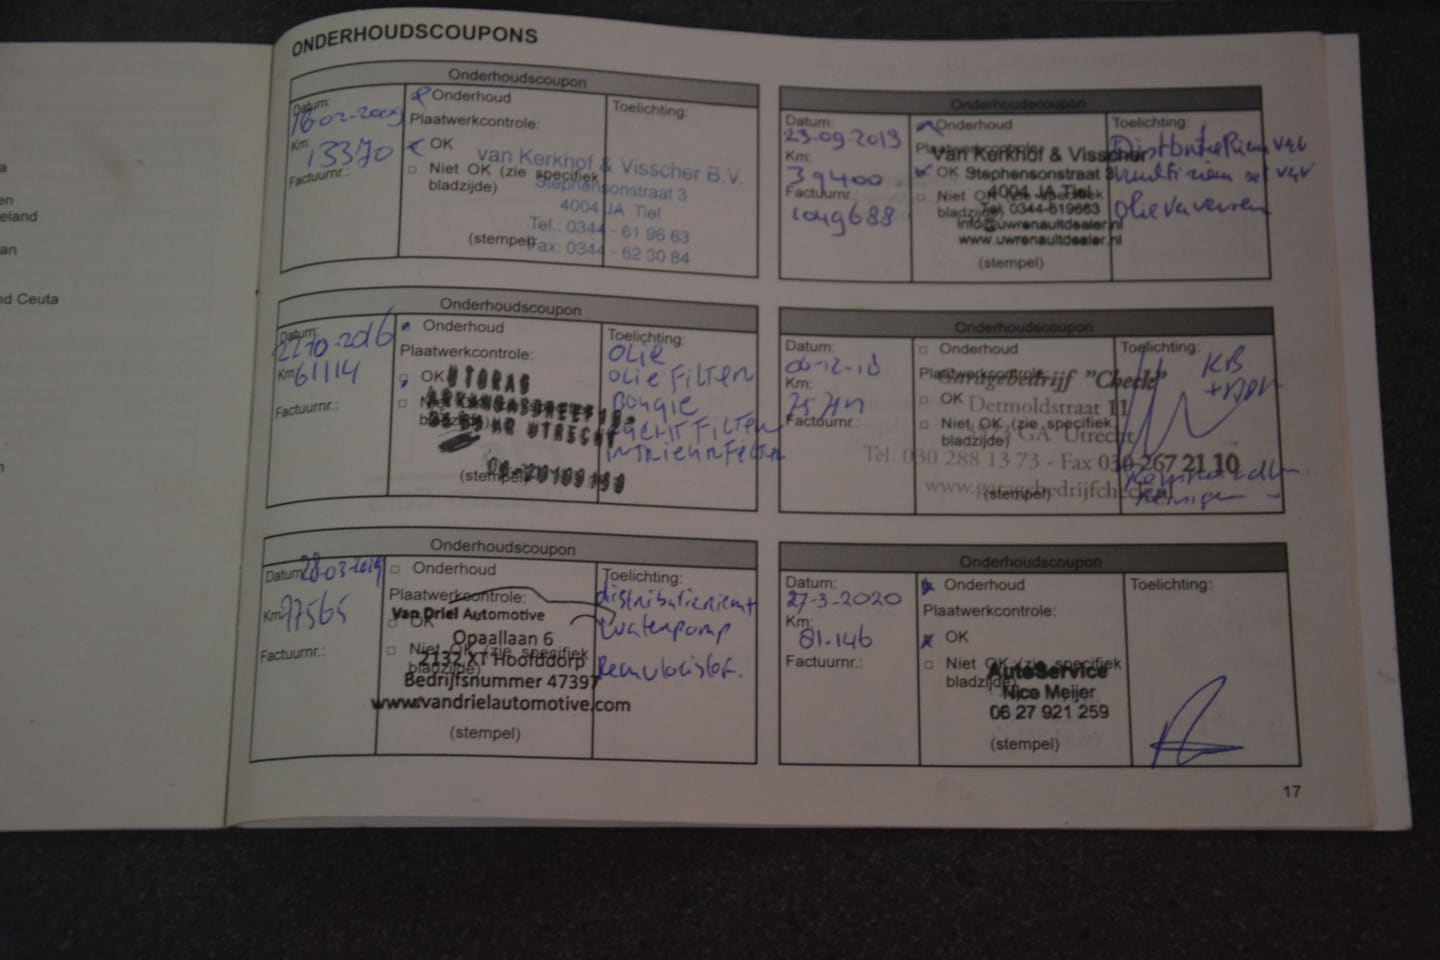 a
en
eland
an
nd Ceuta
ONDERHOUDSCOUPONS
Onderhoudscoupon
Datum:
16-02-2009
Km:
13370
Factuurnr.:
Onderhoud
Plaatwerkcontrole:
OK
Niet OK (zie specifiek
bladzijde)
van Kerkhof & Visscher B.V.
Stephensonstraat 3
4004 JA Tiel
Tel.: 0344 - 61 96 63
Fax: 0344 - 62 30 84
(stempel)
Toelichting:
Onderhoudscoupon
Datum:
23-09-2013
Km:
39400
Factuurnr.:
Onderhoud
Plaatwerkcontrole:
OK
Niet OK (zie specifiek
bladzijde)
Van Kerkhof & Visscher
Stephensonstraat 3
4004 JA Tiel
Tel. 0344-619663
info@uwrenaultdealer.nl
www.uwrenaultdealer.nl
(stempel)
Toelichting:
Distributieriem
olie verversen
Onderhoudscoupon
Datum:
22-10-2016
Km:
61114
Factuurnr.:
Onderhoud
Plaatwerkcontrole:
OK
Niet OK
bladzijde)
UTRECHT
(stempel)
Toelichting:
OLIE
OLIE FILTER
BOUGIE
LUCHT FILTER
Onderhoudscoupon
Datum:
06-12-18
Km:
Factuurnr.:
Onderhoud
Plaatwerkcontrole:
OK
Niet OK (zie specifiek
bladzijde)
Garagebedrijf "Check"
Detmoldstraat 11
GA Utrecht
Tel. 030 288 13 73 - Fax 030 267 21 10
www.garagebedrijfcheck.nl
(stempel)
Toelichting:
KB
Onderhoudscoupon
Datum:
28-03-2019
Km:
77565
Factuurnr.:
Onderhoud
Plaatwerkcontrole:
OK
Niet OK (zie specifiek
bladzijde)
Van Driel Automotive
Opaallaan 6
2132 XT Hoofddorp
Bedrijfsnummer 47397
www.vandrielautomotive.com
(stempel)
Toelichting:
distributieriem +
waterpomp
Remvloeistof.
Onderhoudscoupon
Datum:
27-3-2020
Km:
81.146
Factuurnr.:
Onderhoud
Plaatwerkcontrole:
OK
Niet OK (zie specifiek
bladzijde)
AutoService
Nico Meijer
06 27 921 259
(stempel)
Toelichting:
17